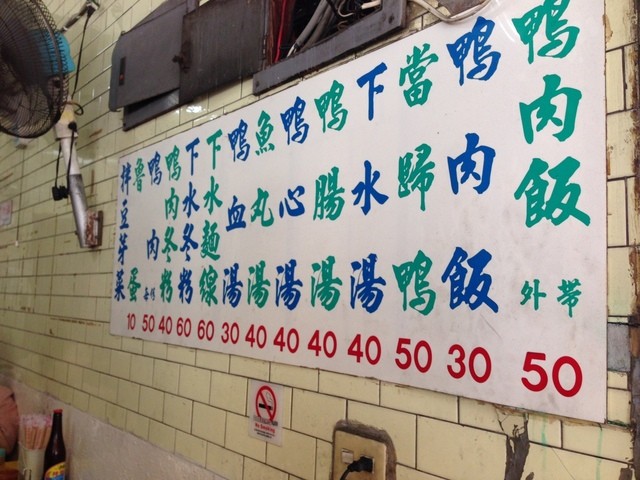 鴨肉飯 外帶 50
鴨肉飯 30
當歸鴨 50
下水湯 40
鴨腸湯 40
鴨心湯 40
魚丸湯 40
鴨血湯 30
下水麵線 60
下水冬粉 60
鴨肉冬粉 40
鴨肉 50
魯蛋 10
拌豆芽菜
No Smoking